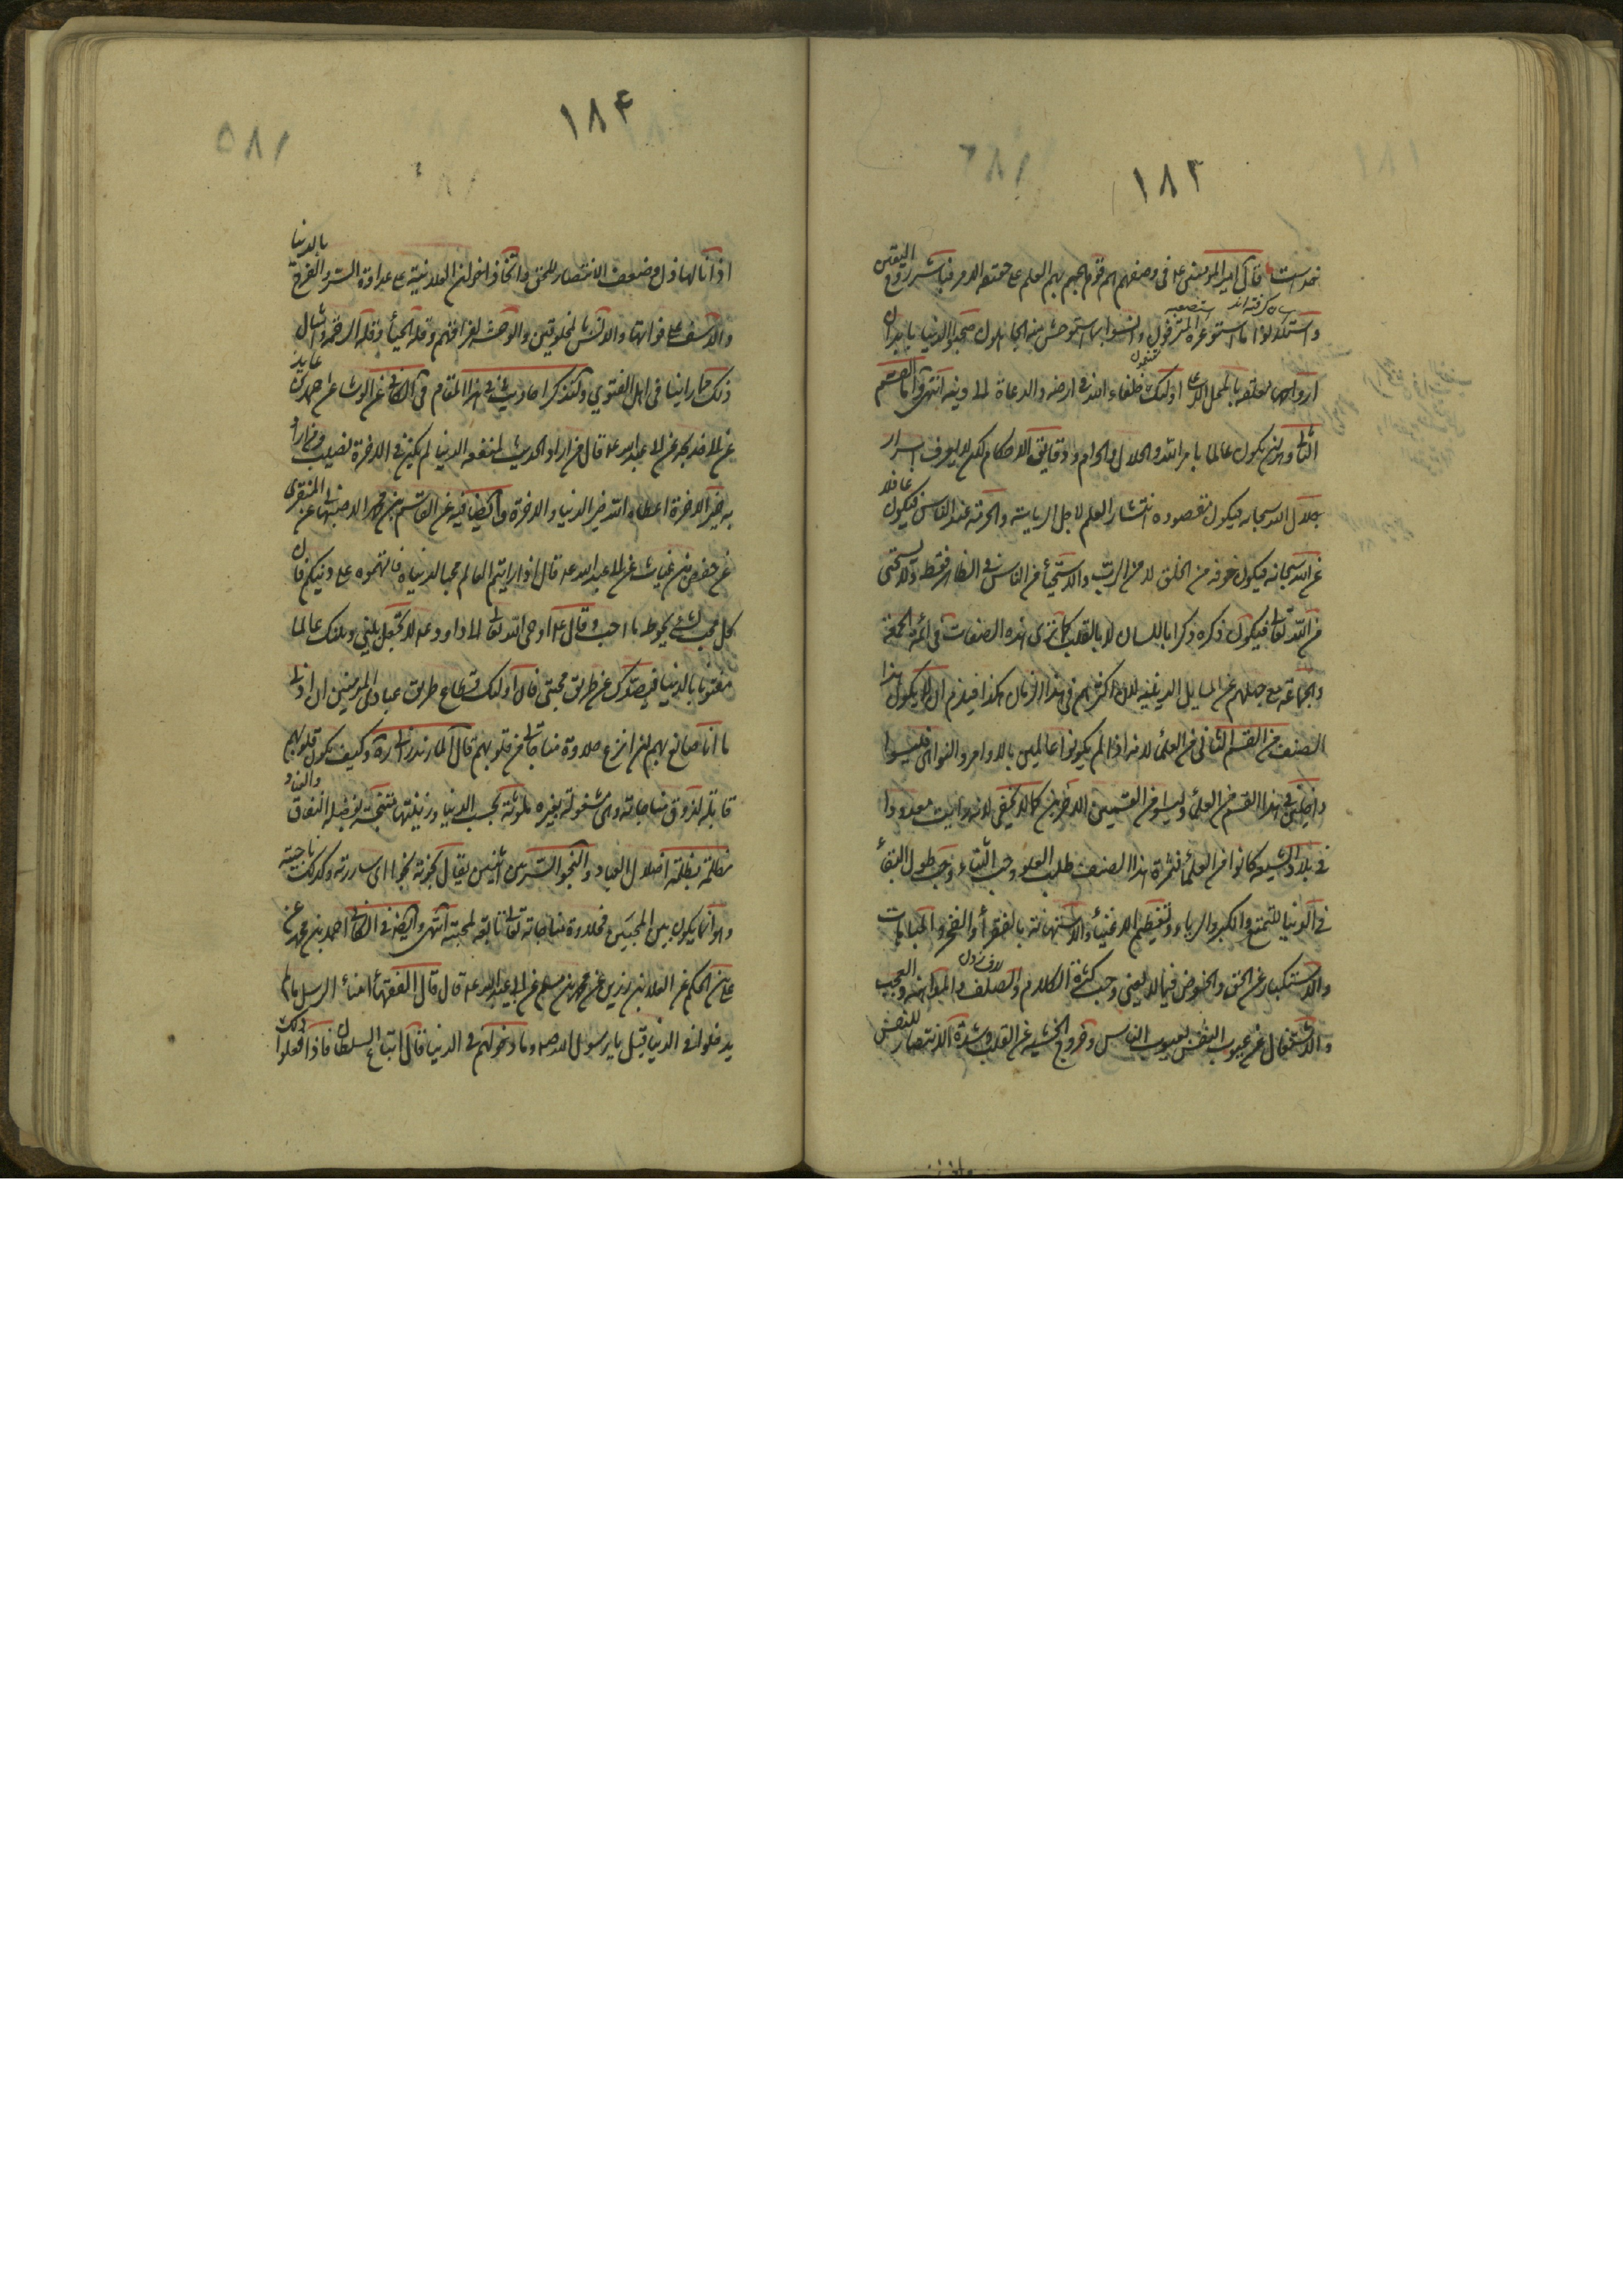 ١٨٣
قال امير المؤمنين ع في وصفهم هم قوم هجم بهم العلم على حقيقة الامر فباشروا روح اليقين
واستلانوا ما استوعره المترفون وانسوا بما استوحش منه الجاهلون صحبوا الدنيا بابدان
ارواحها معلقة بالمحل الاعلى اولئك خلفاء الله في ارضه والدعاة الى دينه انتهى واما القسم
الثالث وهو ان يكون عالما بامر الله والحلال والحرام ودقايق الاحكام لكن لا يعرف اسرار
جلال الله سبحانه فيكون مقصوده انتشار العلم لاجل الرياسة والحرمة عند الناس فيكون غافلا
عن الله سبحانه فيكون خوفه من الخلق لا من الرب والاستحياء من الناس في الظاهر فقط ولا يستحيي
من الله تعالى فيكون ذكره ذكرا باللسان لا بالقلب كما ترى هذه الصفات في ائمة الجمعة
والجماعة مع جهلهم عن المسايل الدينية لان اكثرهم في هذا الزمان هكذا فيلزم ان لا يكون هذا
الصنف من القسم الثاني من العلماء لانه اذا لم يكونوا عالمين بالاوامر والنواهي فليسوا
داخلين في هذا القسم من العلماء وليسوا من القسمين الاخرين كما لا يخفى
في بلاد الشيعة كانوا من العلماء فثمرة هذا الصنف طلب العلو وحب الثناء وحب طول البقاء
في الدنيا للتمتع والكبر والرياء وتعظيم الاغنياء والاستهانة بالفقراء والفخر والمباهات
والاستكبار عن الحق والخوض فيما لا يعني وحب كثرة الكلام والصلف والمداهنة والعجب
والاشتغال عن عيوب النفس بعيوب الناس وخروج الخشية عن القلب وشدة الانتصار للنفس
١٨۴
اذا نالها ذل وضعف الانتصار للحق واتخاذ اخوان العلانية على عداوة السر والفرح بالدنيا
والاسف على فواتها والانس بالمخلوقين والوحشة لفراقهم وقلة الحياء وقلة الرحمة وامثال
ذلك مما راينا في اهل الفتوي ولنذكر احاديث في هذا المقام في الكافي عن الوشاء عن احمد بن عايذ
عن ابي خديجة عن ابي عبد الله ع قال من اراد الحديث لمنفعة الدنيا لم يكن في الاخرة نصيب ومن اراد
به خير الاخرة اعطاه الله خير الدنيا والاخرة وايضا فيه عن القاسم بن محمد الاصبهاني عن المنقري
عن حفص بن غياث عن ابي عبد الله ع قال اذا رايتم العالم محبا لدنياه فاتهموه على دينكم فان
كل محب لشيء يحوط ما احب وقال ع اوحى الله تعالى الى داود ع لا تجعل بيني وبينك عالما
مفتونا بالدنيا فيصدك عن طريق محبتي فان اولئك قطاع طريق عبادي المريدين ان ادنى
ما انا صانع بهم ان انزع حلاوة مناجاتي من قلوبهم قال المازندراني ره وكيف يكون قلوبهم
قابلة لذوق مناجاته وهي مشغولة بغيره ملوثة بحب الدنيا وزينتها
مظلمة بظلمة اضلال العباد والنجوا السر بين اثنين يقال نجوته نجوا اى ساررته وكذلك ناجيته
وهو انما يكون بين المحبين فحلاوة مناجاته تعالى تابعة لمحبته انتهى وايضا في الكافي احمد بن محمد عن
علي بن الحكم عن العلا بن رزين عن محمد بن مسلم عن ابي عبد الله ع قال قال الفقهاء امناء الرسل ما لم
يدخلوا في الدنيا قيل يا رسول الله ص وما دخولهم في الدنيا قال اتباع السلطان فاذا فعلوا ذلك